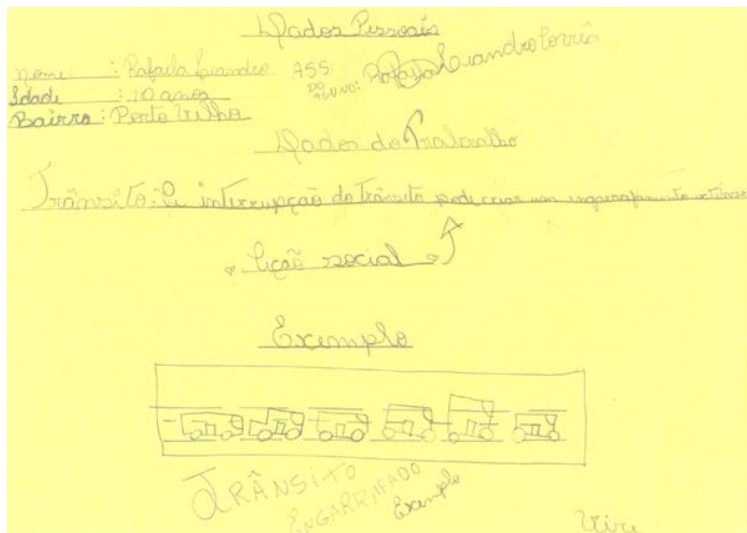 Dados Pessoais
Nome : Rafaela Leandro
ASS.
DO
ALUNO: Rafaela Leandro Corrêa
Idade : 10 anos
Bairro : Porto Velho
Dados do Trabalho
Trânsito: A interrupção do trânsito pode criar um engarrafamento extenso
Lição social
Exemplo
TRÂNSITO
ENGARRAFADO
Exemplo
Vire